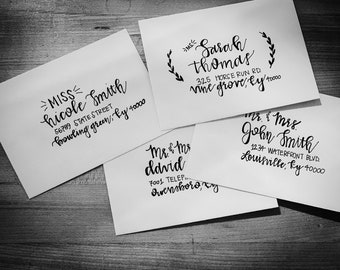 MISS
nicole Smith
56789 STATE STREET
bowling green, Ky 40000
MS.
Sarah
thomas
325 HORSE RUN RD
vine grove, Ky 40000
Mr. & Mrs.
david
7001 TELEP
Owensboro, Ky
Mr. & Mrs.
John Smith
1234 WATERFRONT BLVD.
Louisville, Ky 40000